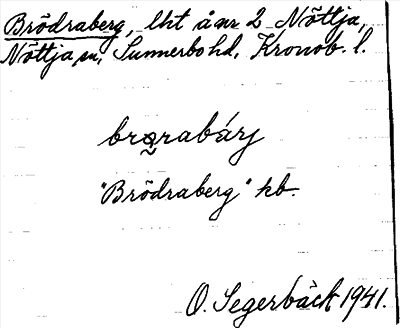 Brödraberg, lht å nr 2 Nöttja,
Nöttja sn, Sunnerbo hd, Kronob. l.
brǫrabárj
"Brödraberg" kb.
O. Segerbäck 1941.